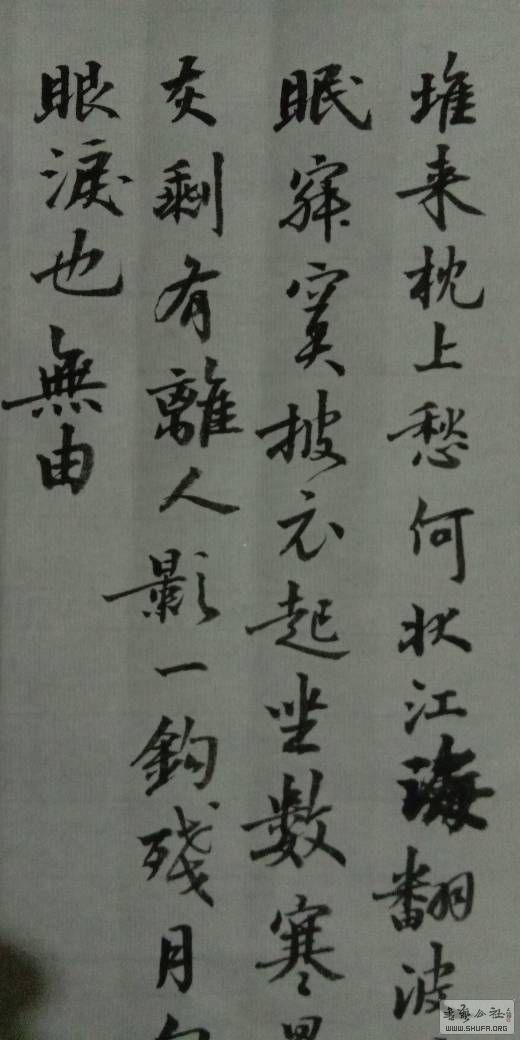 堆来枕上愁何状江海翻波
眠寂寞披衣起坐數寒
灰剩有離人影一鈎殘月
眼淚也無由
書藝公社
WWW.SHUFA.ORG